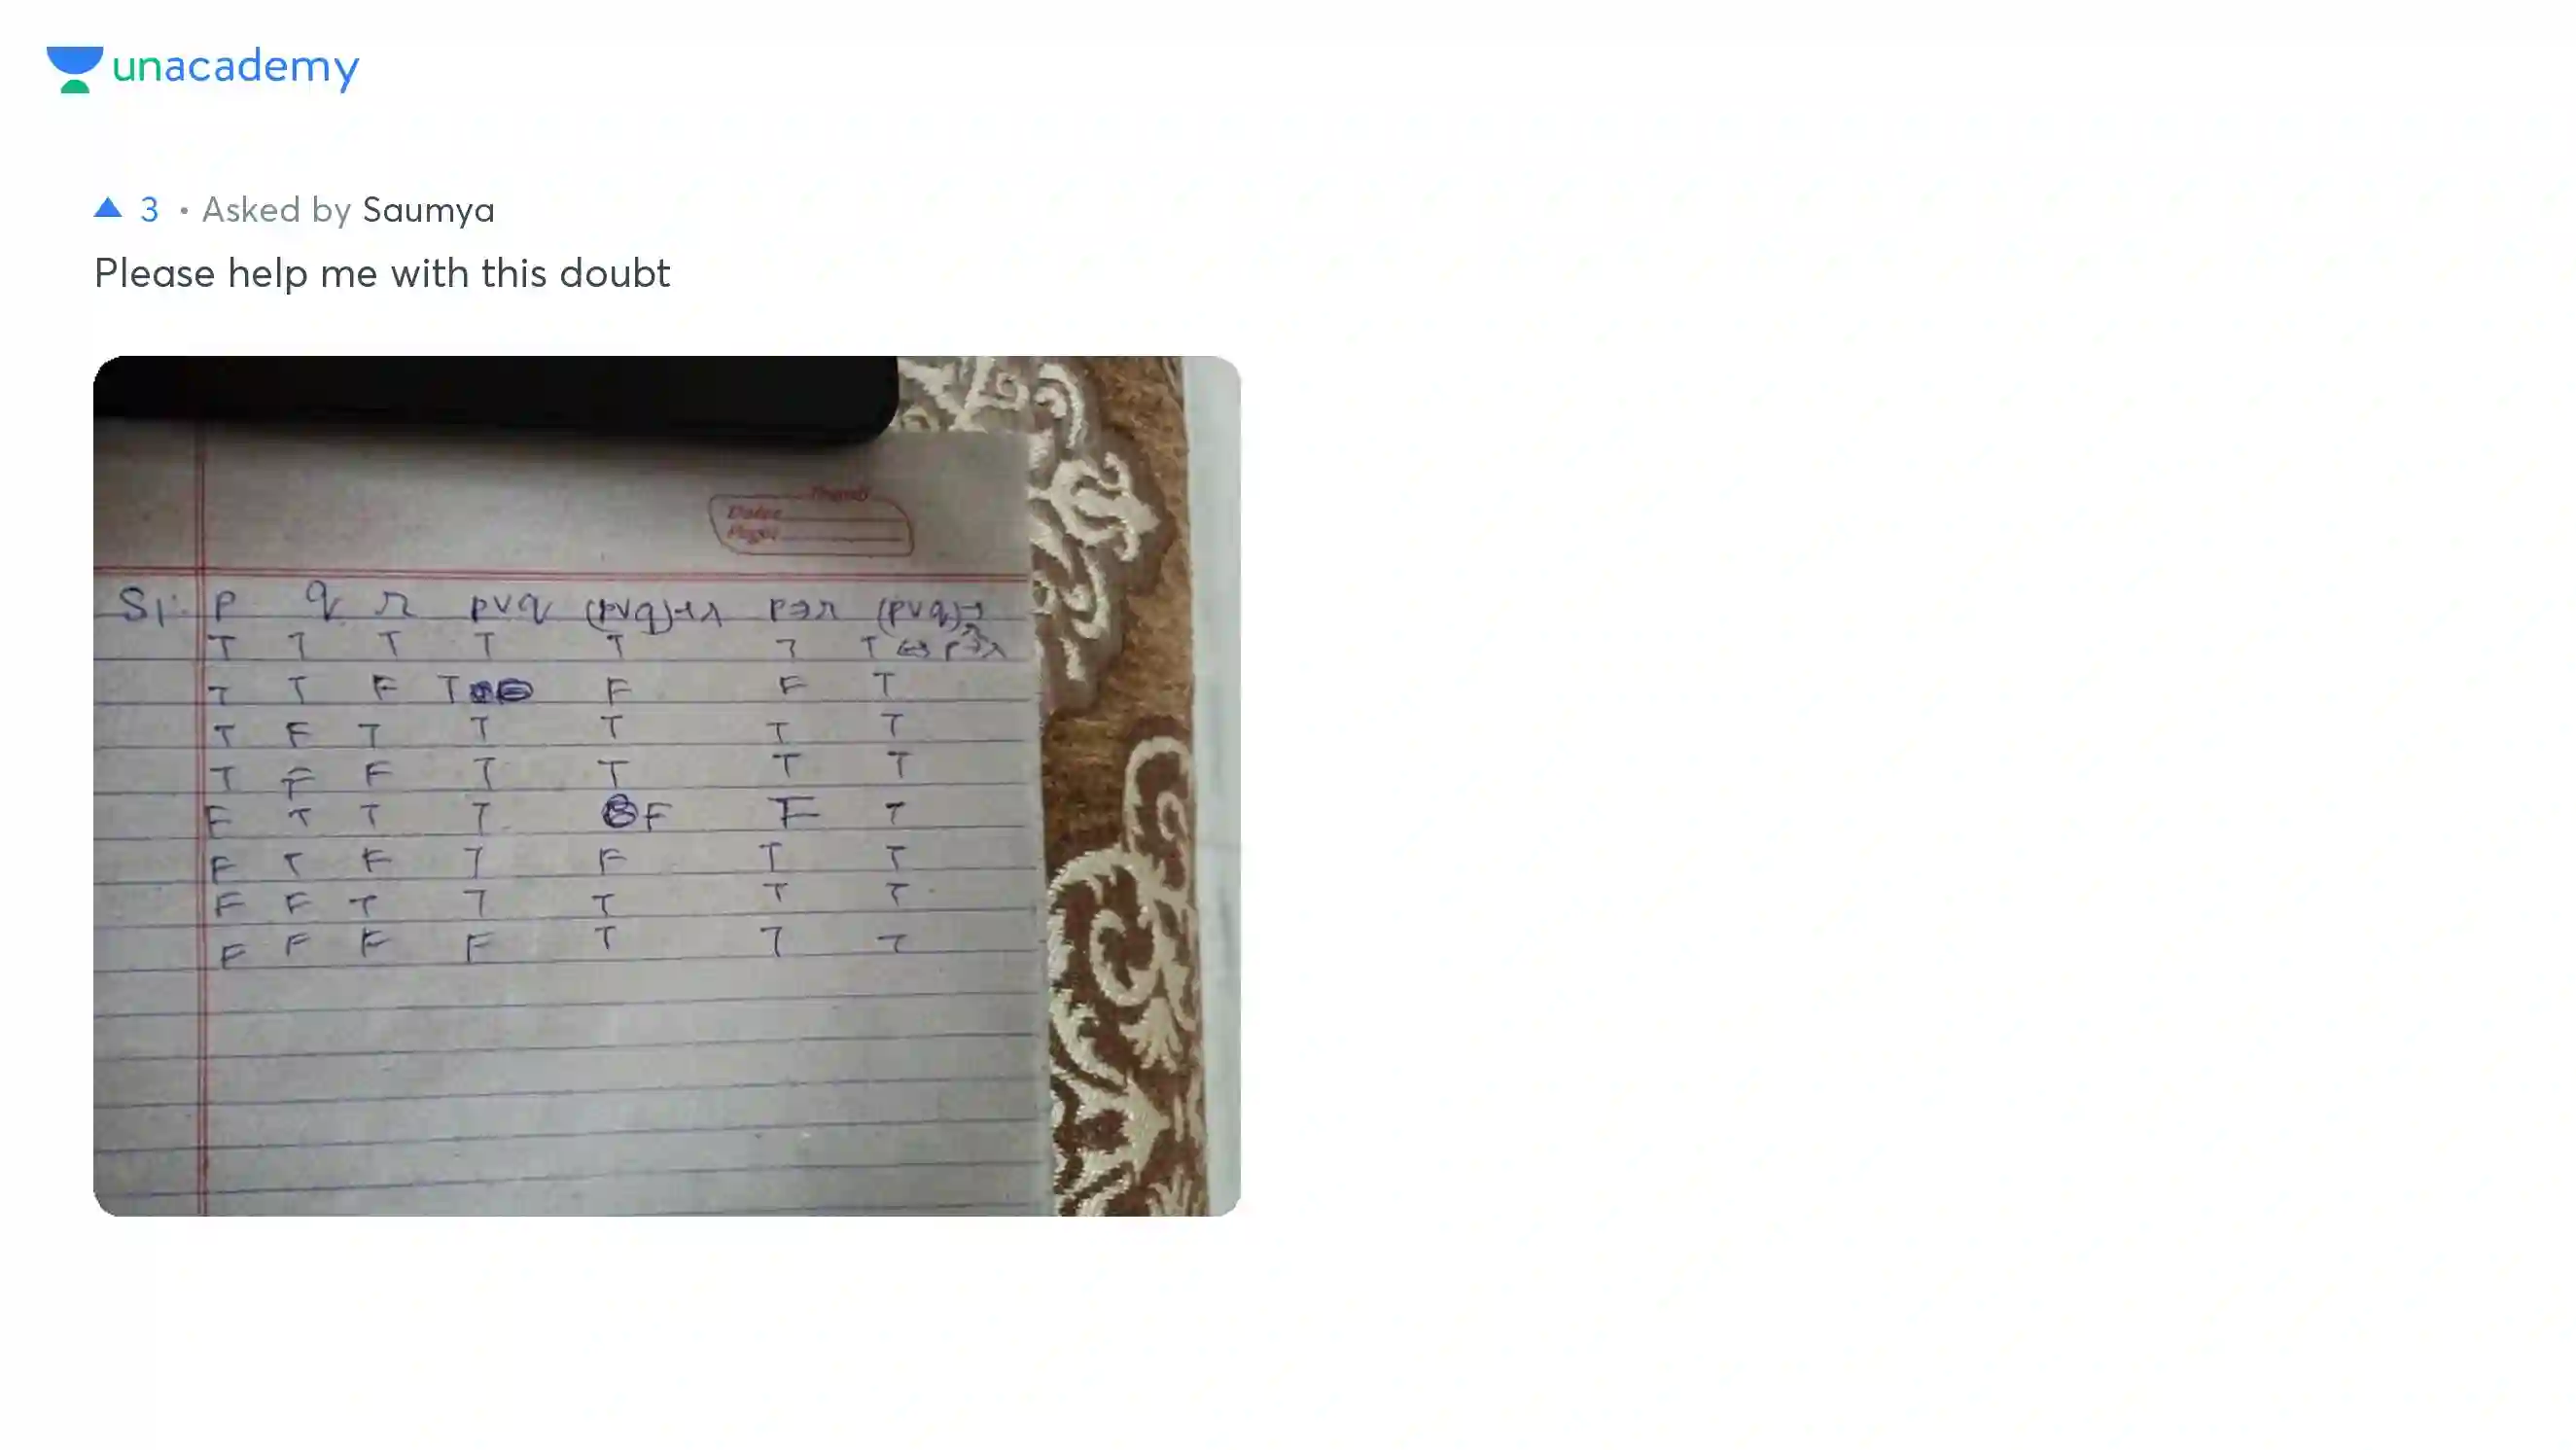 unacademy
3 • Asked by Saumya
Please help me with this doubt
Date
Page
S1: p q r p∨q (p∨q)→r p→r (p∨q)→r
T T T T T T T ↔ p→r
T T F T F F T
T F T T T T T
T F F T T T T
F T T T F F T
F T F T F T T
F F T T T T T
F F F F T T T